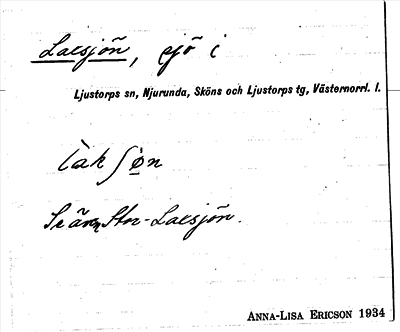 Laxsjön, sjö i
Ljustorps sn, Njurunda, Sköns och Ljustorps tg, Västernorrl. l.
Se även Stor-Laxsjön.
ANNA-LISA ERICSON 1934